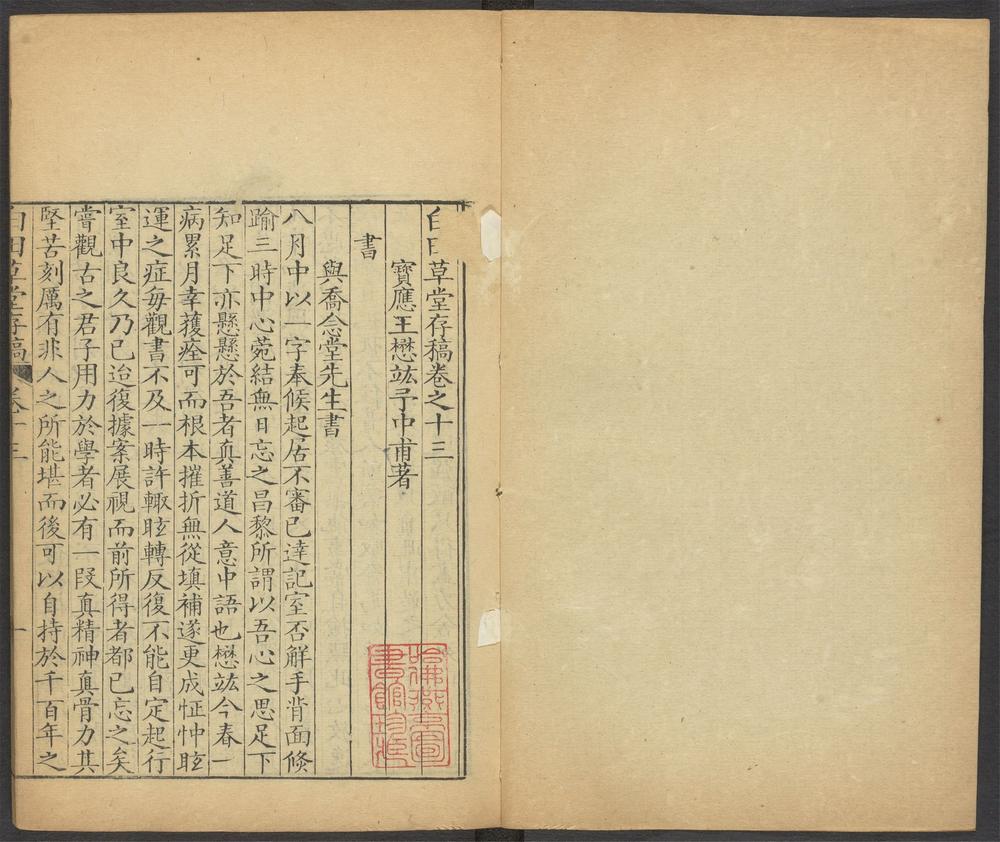 白田草堂存稿卷之十三
寶應王懋竑予中甫著
書
與喬念堂先生書
八月中以一字奉候起居不審已達記室否解手背面倐
踰三時中心菀結無日忘之昌黎所謂以吾心之思足下
知足下亦懸懸於吾者真善道人意中語也懋竑今春一
病累月幸獲痊可而根本摧折無從填補遂更成怔忡眩
運之症每觀書不及一時許輙眩轉反復不能自定起行
室中良久乃已迨復據案展視而前所得者都已忘之矣
嘗觀古之君子用力於學者必有一叚真精神真骨力其
堅苦刻厲有非人之所能堪而後可以自持於千百年之
白田草堂存稿 卷十三 一
哈佛燕京圖書館珍藏